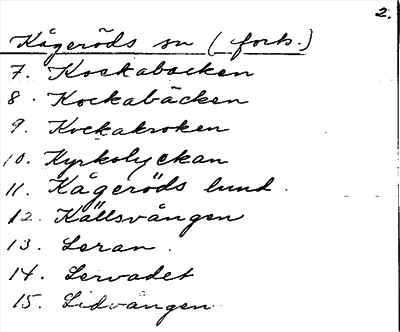 2.
Kågeröds sn (forts.)
7. Kockabacken
8. Kockabäcken
9. Kockakroken
10. Kyrkolyckan
11. Kågeröds lund.
12. Källsvången
13. Leran.
14. Lervadet
15. Lidvången